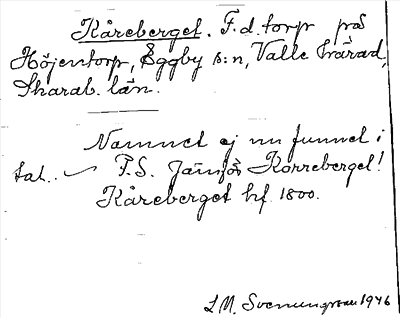 Kåreberget. F. d. torp på
Höjentorp, Eggby s:n, Valle härad,
Skarab. län.
Namnet ej nu funnet i
tal. – F.S. Jämför Korreberget!
Kåreberget hf 1800.
S.M. Svenungsson 1946